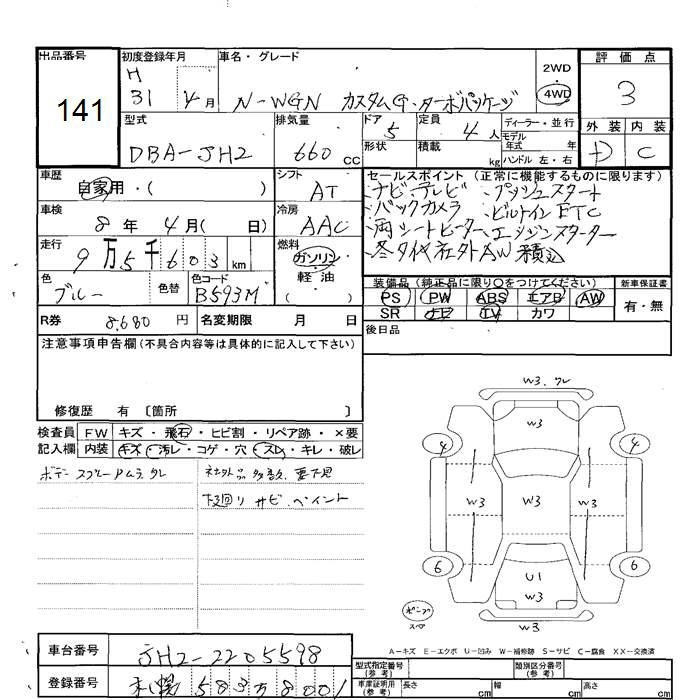 出品番号
141
初度登録年月
H
31 4月
車名・グレード
N-WGN カスタムG・ターボパッケージ
2WD
4WD
評価点
3
外装 内装
D C
型式
DBA-JH2
排気量
660 cc
ドア
5
形状
定員
4人
積載
kg
ディーラー・並行
モデル
年式 年
ハンドル 左・右
車歴
自家用・( )
シフト
AT
車検
8年 4月( 日)
冷房
AAC
走行
9万5千603 km
燃料
ガソリン
軽油
色
ブルー
色替
色コード
B593M
セールスポイント (正常に機能するものに限ります)
・ナビ、テレビ ・プッシュスタート
・バックカメラ ・ビルトインETC
・両シートヒーター・エンジンスターター
・冬タイヤ社外AW積込
装備品(純正品に限り○をつけてください)
PS PW ABS エアB AW
SR ナビ TV カワ
新車保証書
有・無
R券 8,680円
名変期限 月 日
後日品
注意事項申告欄(不具合内容等は具体的に記入して下さい)
修復歴 有 〔箇所 〕
検査員
記入欄
FW キズ・飛石・ヒビ割・リペア跡・×要
内装 キズ・汚レ・コゲ・穴・スレ・キレ・破レ
ボデースプレームラ、クレ
社外品多数、要下見
下廻りサビ、ペイント
W3、クレ
W3
4
4
W3
W3
W3
6
6
U1
W3
W3
スペア
A-キズ E-エクボ U-凹み W-補修跡 S-サビ C-腐食 XX-交換済
車台番号
JH2-2205598
登録番号
札幌 583 す 8001
型式指定番号
(参考)
類別区分番号
(参考)
車庫証明用
(参考)
長さ cm
幅 cm
高さ cm